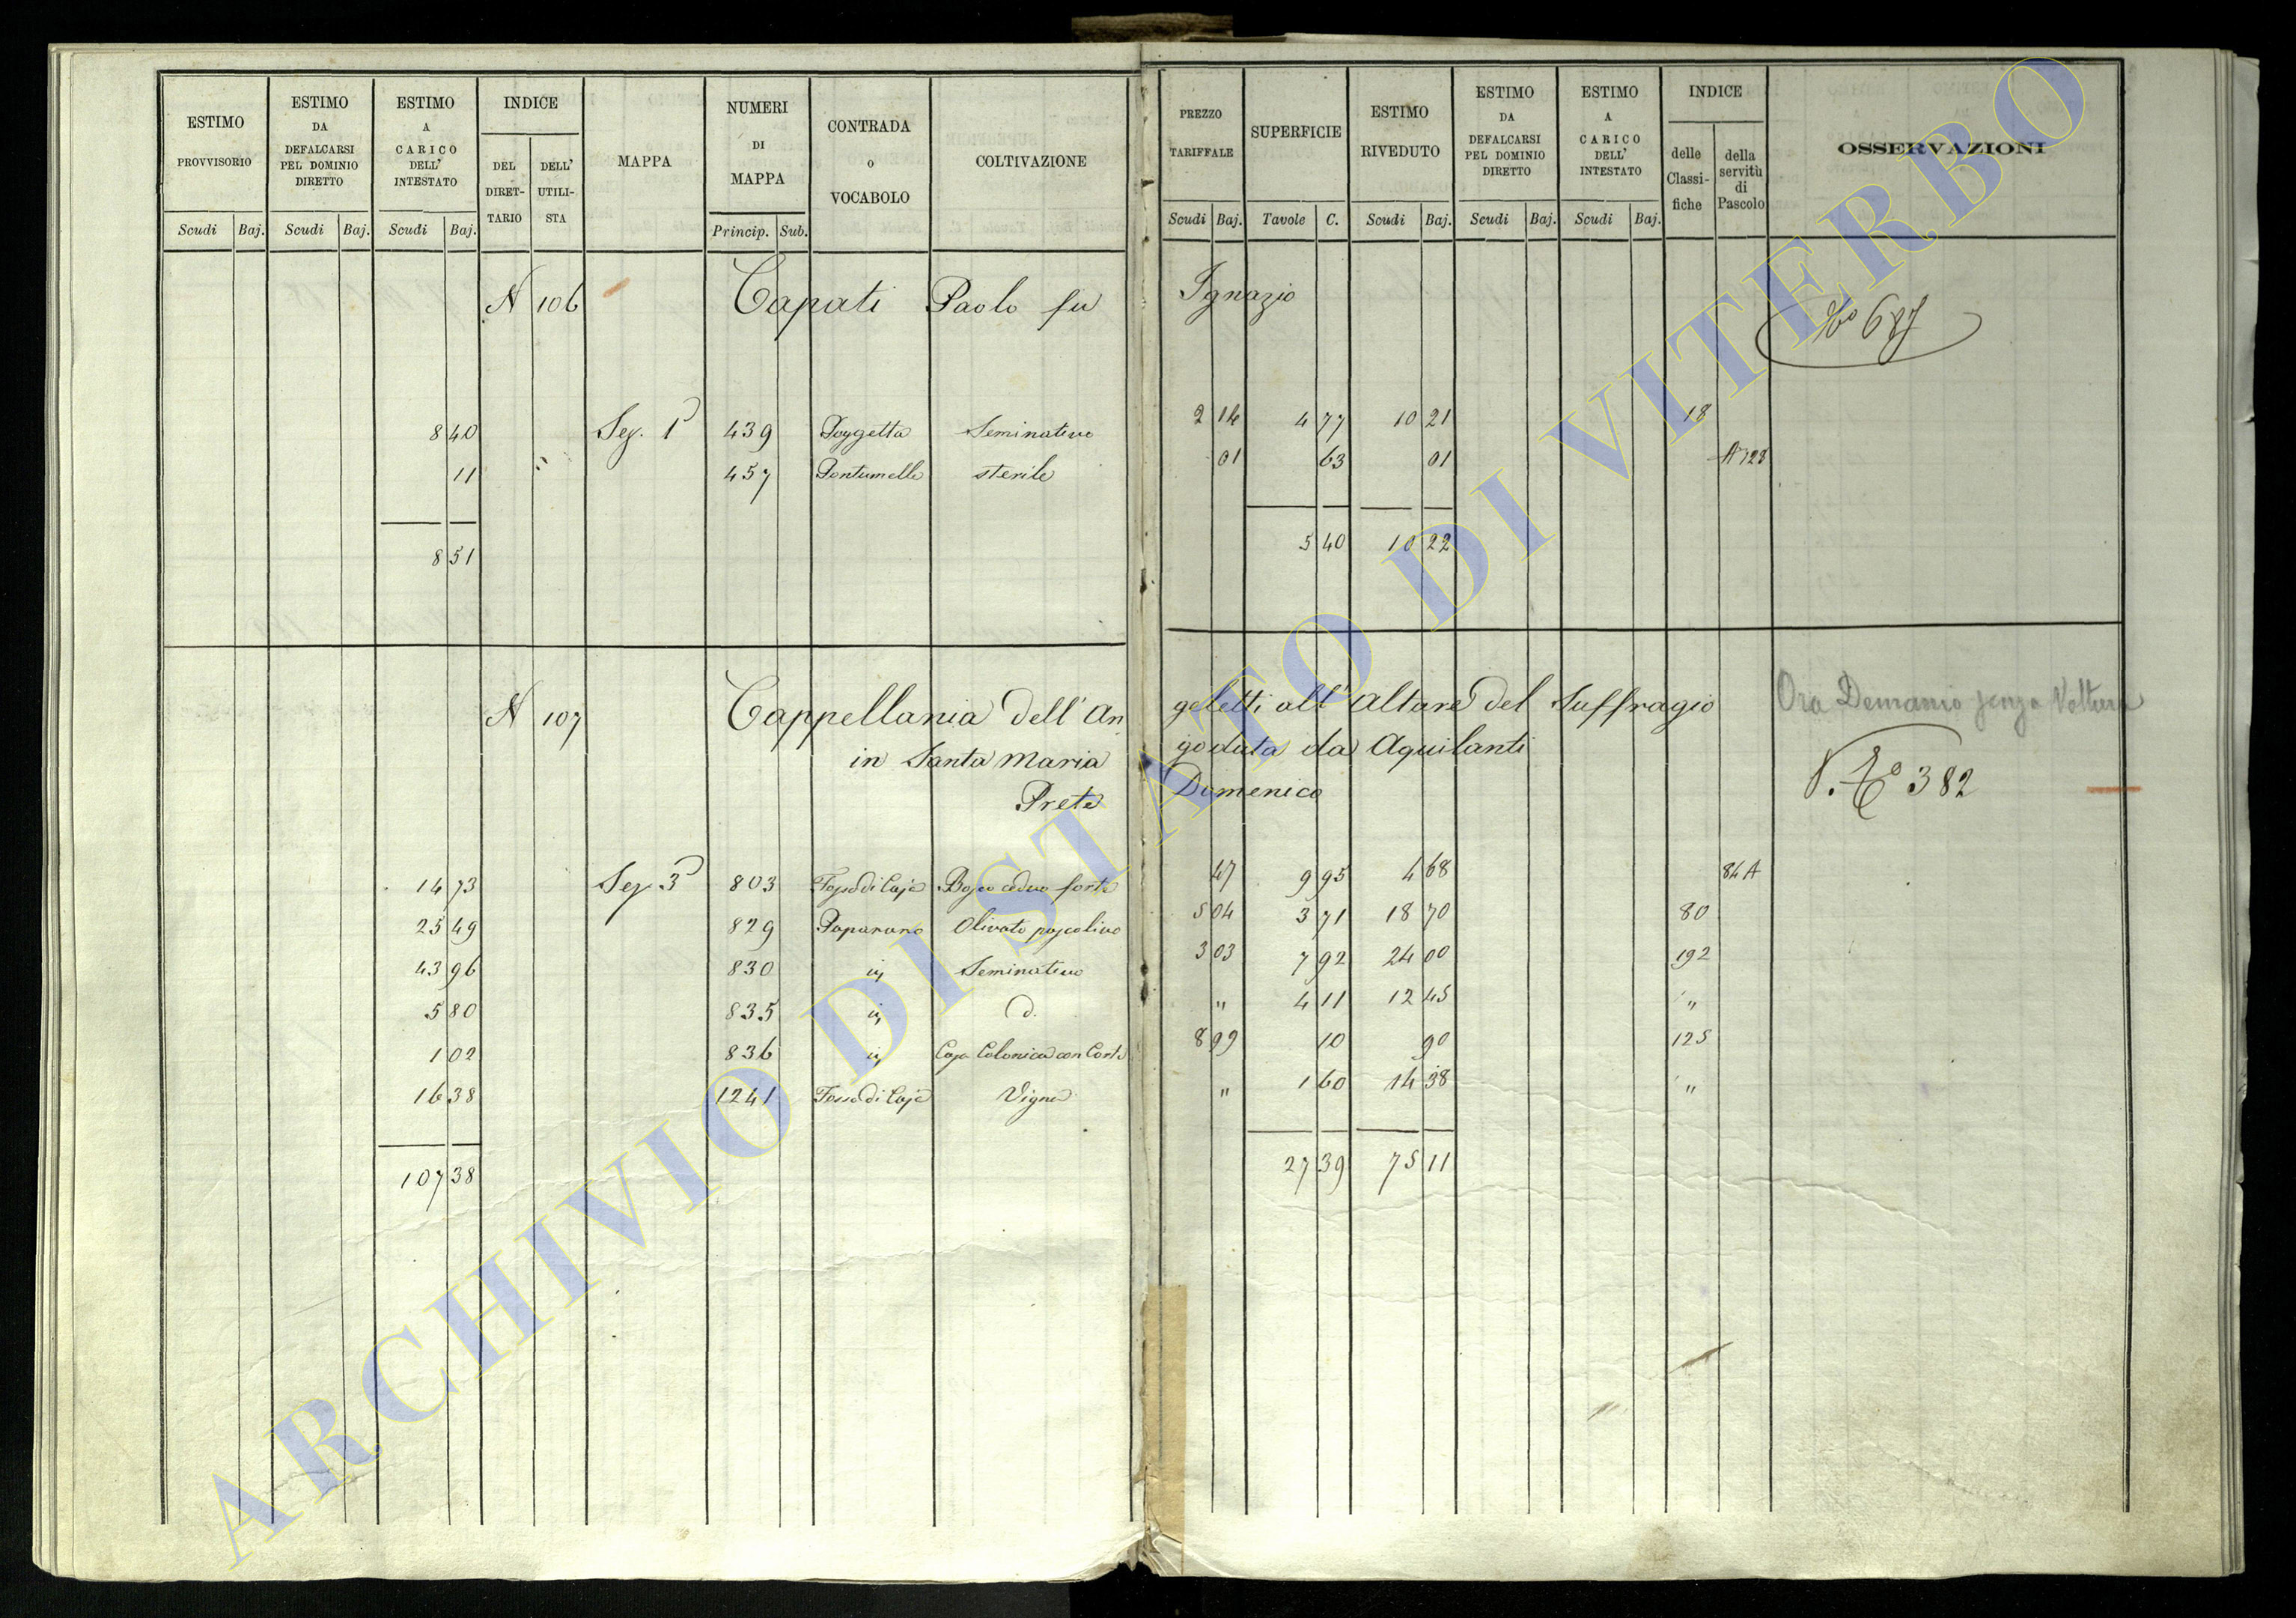 ESTIMO PROVVISORIO
ESTIMO DA DEFALCARSI PEL DOMINIO DIRETTO
ESTIMO A CARICO DELL' INTESTATO
INDICE
DEL DIRET-TARIO
DELL' UTILI-STA
MAPPA
NUMERI DI MAPPA
CONTRADA o VOCABOLO
COLTIVAZIONE
PREZZO TARIFFALE
SUPERFICIE
ESTIMO RIVEDUTO
ESTIMO DA DEFALCARSI PEL DOMINIO DIRETTO
ESTIMO A CARICO DELL' INTESTATO
INDICE
delle Classi-fiche
della servitù di Pascolo
OSSERVAZIONI
Scudi Baj. Scudi Baj. Scudi Baj. Princip. Sub. Scudi Baj. Tavole C. Scudi Baj. Scudi Baj. Scudi Baj.
N 106 Capati Paolo fu Ignazio
No 687
8 40 Sez. 1ª 439 Poggetta Seminativo 2 14 4 77 10 21 18
11 457 Pontumelle sterile 01 63 01 A 128
8 51 5 40 10 22
N 107 Cappellania dell' Angeletti all' Altare del Suffragio
Ora Demanio senza Voltura
in Santa Maria goduta da Aquilanti
Prete Domenico
382
14 73 Sez. 3ª 803 Fosso di Caja Bosco ceduo forte 47 9 95 4 68 84 A
25 49 829 Paparano Olivato pascolivo 5 04 3 71 18 70 80
43 96 830 iv Seminativo 3 03 7 92 24 00 192
5 80 835 iv d. " 4 11 12 45 "
1 02 836 iv Casa Colonica con Corte 8 99 10 90 125
16 38 1241 Fosso di Caja Vigna " 1 60 14 38 "
107 38 27 39 75 11
ARCHIVIO DI STATO DI VITERBO